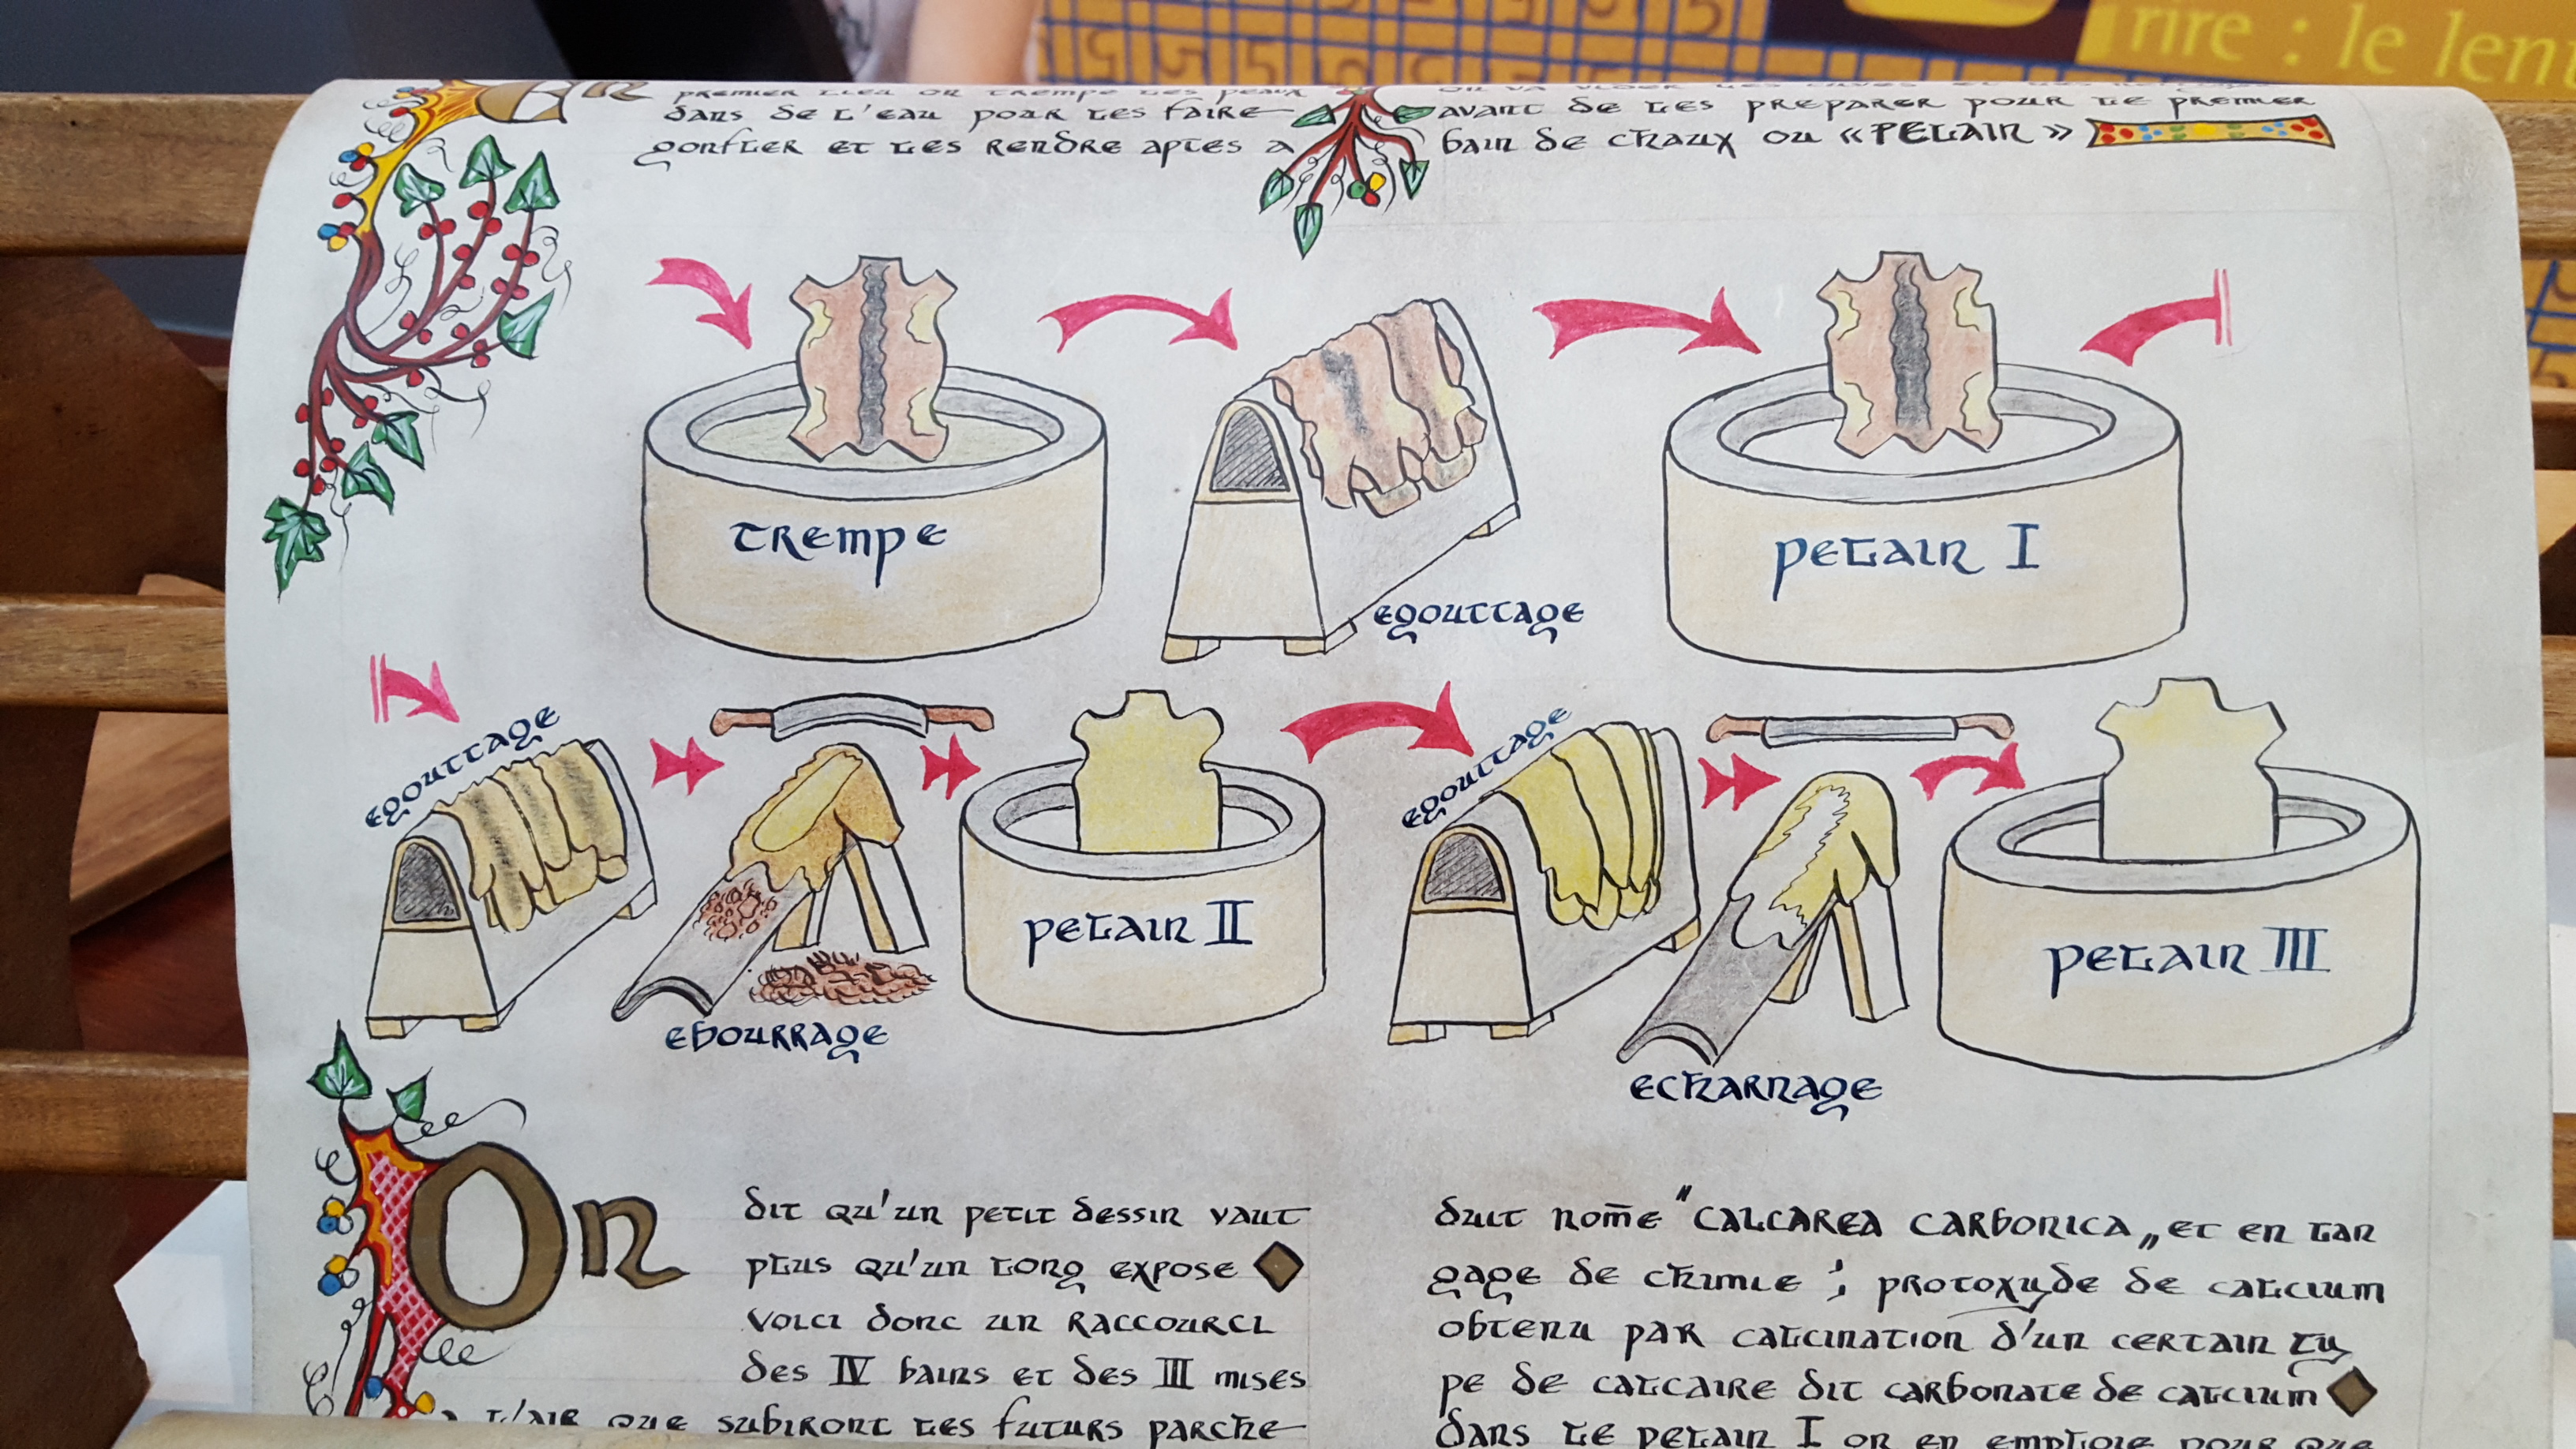 rire : le lent
En
premier lieu on trempe les peaux
dans de l'eau pour les faire
gonfler et les rendre aptes a
on va vider les cuves et les
avant de les preparer pour le premier
bain de chaux ou «PELAIN»
trempe
egouttage
pelain I
egouttage
ebourrage
pelain II
egouttage
echarnage
pelain III
On
dit qu'un petit dessin vaut
plus qu'un long expose
voici donc un raccourci
des IV bains et des III mises
a l'air que subiront les futurs parche-
duit nom̄e "CALCAREA CARBONICA„ et en lan
gage de chimie ; protoxyde de calcium
obtenu par calcination d'un certain ty
pe de calcaire dit carbonate de calcium
dans le pelain I on en emploie pour que